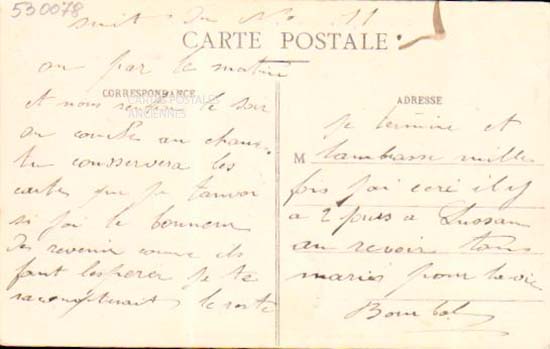 530078
suit du No 11
CARTE POSTALE
on par le matin
CORRESPONDANCE
CARTES POSTALES
ANCIENNES
et nous le soir
on couche au
tu consservera les
cartes que je
si jai le bonneur
des revenir comme ils
faut je te
le reste
ADRESSE
je termine et
M tambrasse mille
fois jai il y
a 2 jours a Lussan
au revoir tons
maries pour la vie